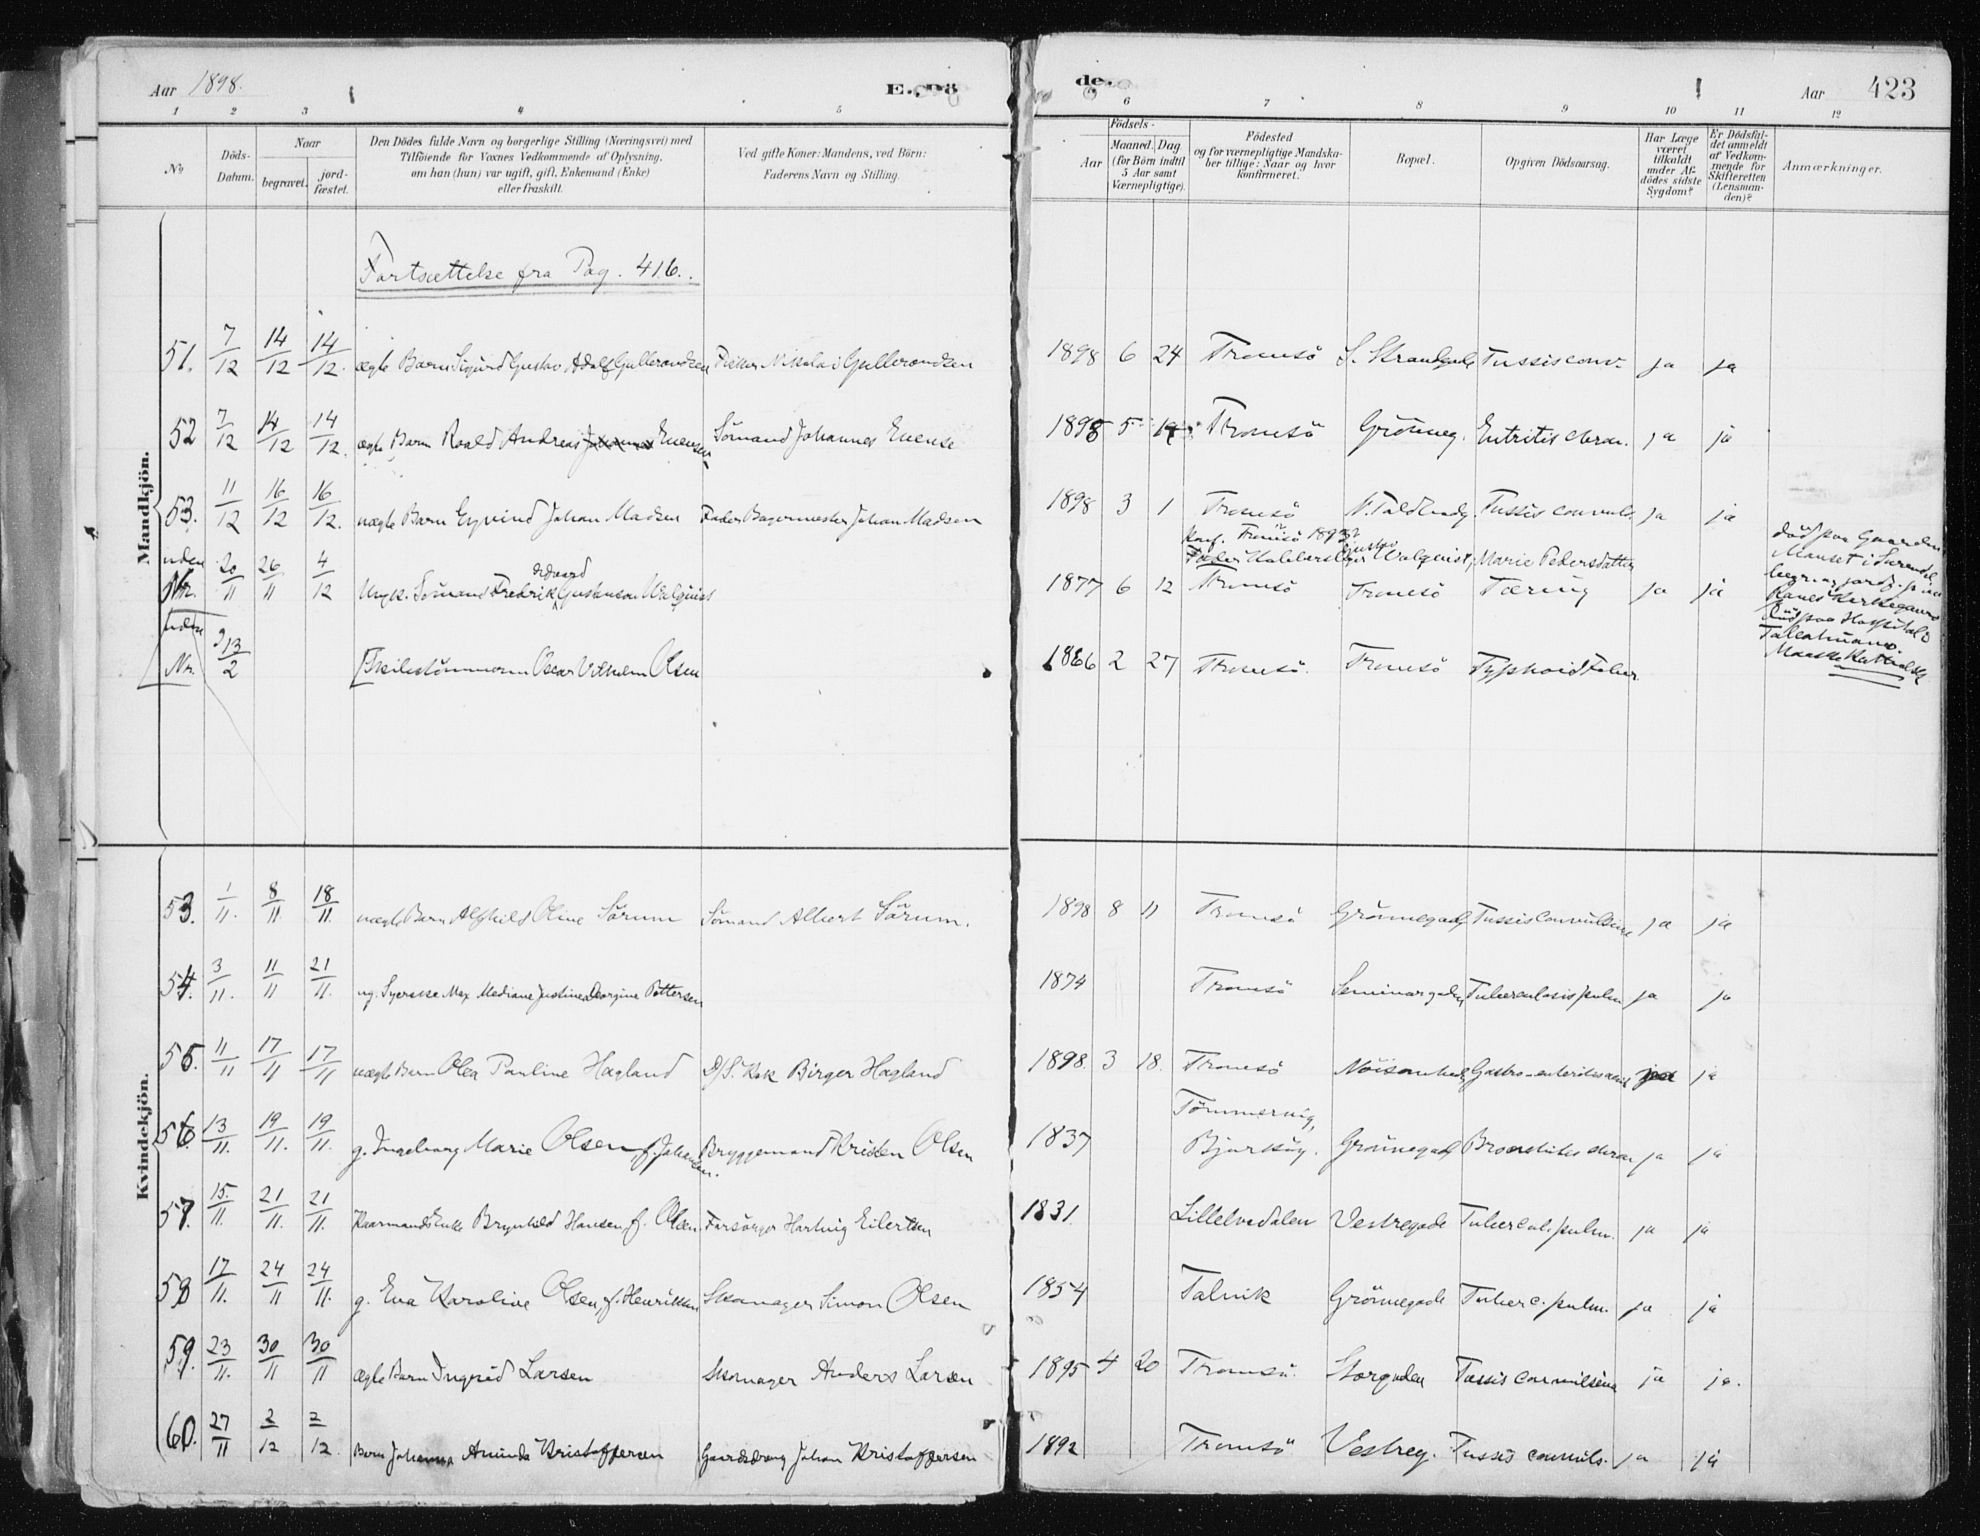 Aar 1898. E. Dö de. Aar 423
1 2 3 4 5 6 7 8 9 10 11 12
No
Döds-Datum.
Naar
begravet. jord-fæstet.
Den Dödes fulde Navn og borgerlige Stilling (Næringsvei) med
Tilföiende for Voxnes Vedkommende af Oplysning,
om han (hun) var ugift, gift, Enkemand (Enke)
eller fraskilt.
Ved gifte Koner: Mandens, ved Börn:
Faderens Navn og Stilling.
Födsels-
Aar Maaned. Dag
(for Börn indtil
5 Aar samt
Værnepligtige).
Födested
og for værnepligtige Mandska-
ber tillige: Naar og hvor
konfirmeret.
Bopæl.
Opgiven Dödsaarsag.
Har Læge
været
tilkaldt
under Af-
dödes sidste
Sygdom?
Er Dödsfal-
det anmeldt
af Vedkom-
mende for
Skifteretten
(Lensman-
den)?
Anmærkninger.
Mandkjön.
Fortsættelse fra Pag. 416.
51. 7/12 14/12 14/12. ægte Barn Sigurd Gustav Adolf Gullerandsen Fisker Nikolai Gullerandsen 1898 6 24 Tromsö S. Strandgade Tussis conv. ja ja
52 7/12 14/12 14/12. ægte Barn Roald Andreas Evensen Sömand Johannes Evensen 1898 5 Tromsö Grönneg. Entritis chron. ja ja
53. 11/12 16/12 16/12. uægte Barn Eyvind Johan Madsen Fader Bagermester Johan Madsen 1898 3 1 Tromsö N. Toldbodg. Tussis convuls. ja ja
Konf. Tromsö 1892
Fader Gustav Walquist, Marie Pedersdatter
uden Nr. 20/11 26/11 4/12 Ungk. Sömand Fredrik Edvard Gustavson Walquist 1877 6 12 Tromsö Tromsö Tæring ja ja
död paa Gaarden
uden Nr. 13/2 Oscar Vilhelm Olsen 1866 2 27 Tromsö. Tromsö Typhoid Feber.
död paa Hospital i
Talcahuano.
Kvindekjön.
53. 1/11. 8/11. 18/11. uægte Barn Alfhild Oline Sörum Sömand Albert Sörum. 1898 8 11 Tromsö Grönnegade Tussis Convulsiva ja ja
54. 3/11. 11/11 21/11. ug. Syerske Max Mediane Justine Georgine Pettersen 1874 Tromsö Seminargaden Tuberculosis pulm ja ja
55. 11/11 17/11 17/11 uægte Barn Olea Pauline Hagland D/S. Kok Birger Hagland 1898. 3 18. Tromsö Gastro-enterites acut ja ja
56. 13/11. 19/11. 19/11. g. Ingeborg Marie Olsen, f. Johansen. Bryggemand Kristen Olsen 1837 Tömmervig, Bjarköy. Grönnegade Bronchites chron ja ja
57. 15/11. 21/11. 21/11. Enke Brynhild Hansen f. Olsen Forsörger Hartvig Eilertsen 1831. Lillelvedalen Vestregade Tubercul. pulm. ja ja
58 17/11. 24/11 24/11. g. Eva Karoline Olsen, f. Henriksen Skomager Simon Olsen 1854 Talvik Grönnegade Tuberc. pulm. ja ja
59. 23/11. 30/11 30/11 ægte Barn Ingrid Larsen Skomager Anders Larsen 1895 4 20 Tromsö. Storgaden Tussis convulsiva ja ja.
60. 27/11 2/12 2/12. Barn Johanna Aminda Kristoffersen Gaardsdreng Johan Kristoffersen 1892 Tromsö Vestreg. Tussis convuls. ja ja